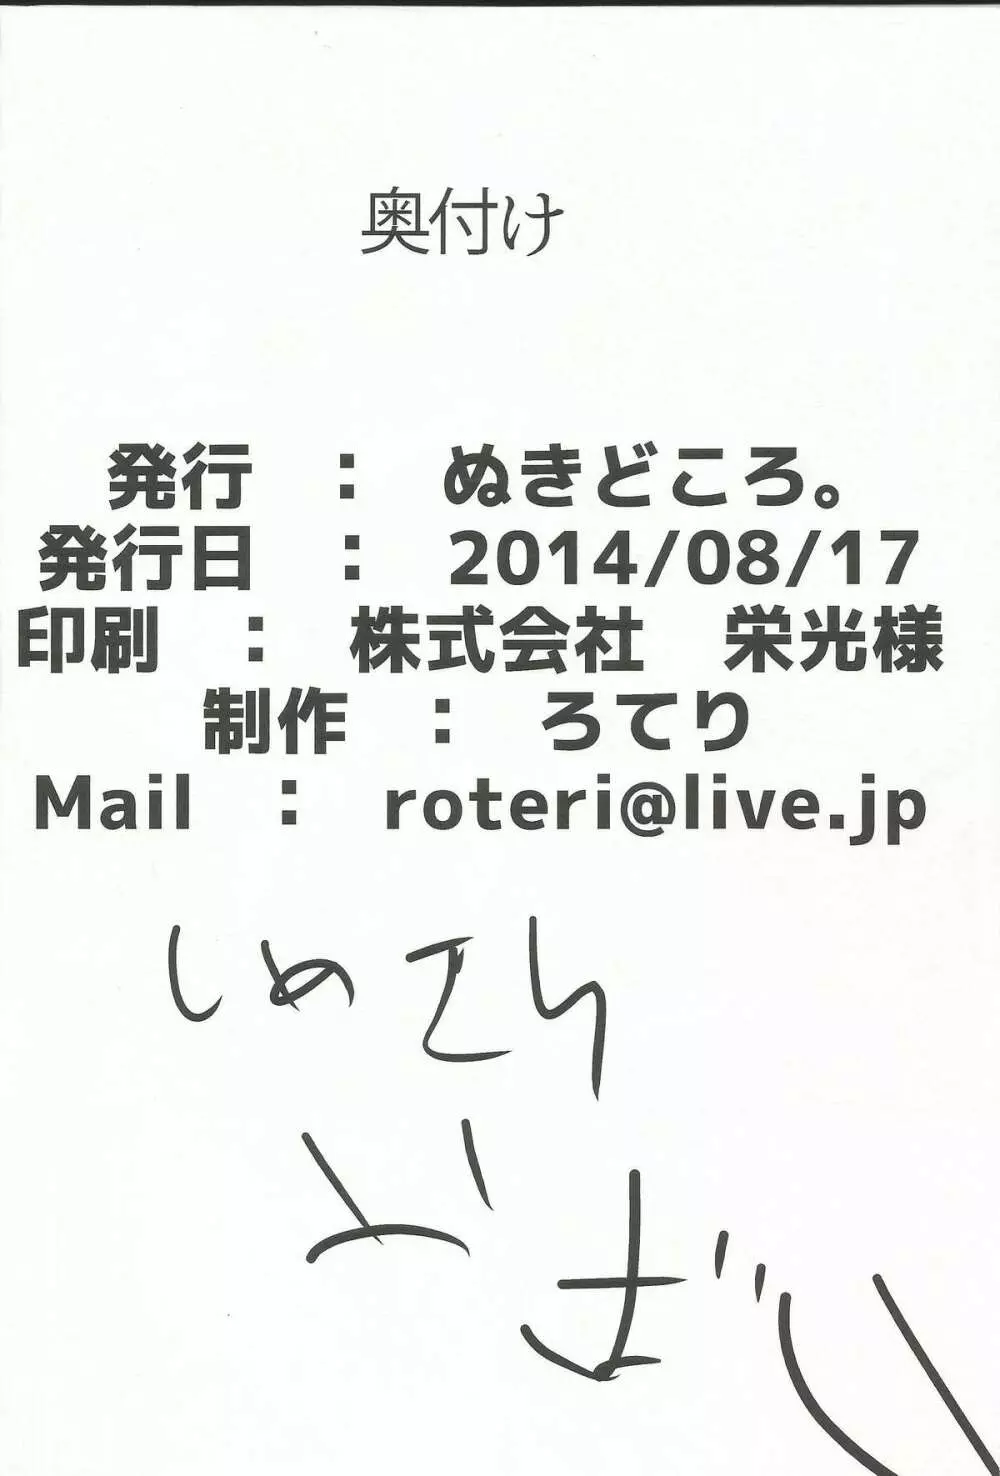 奥付け
発行 : ぬきどころ。
発行日 : 2014/08/17
印刷 : 株式会社 栄光様
制作 : ろてり
Mail : roteri@live.jp